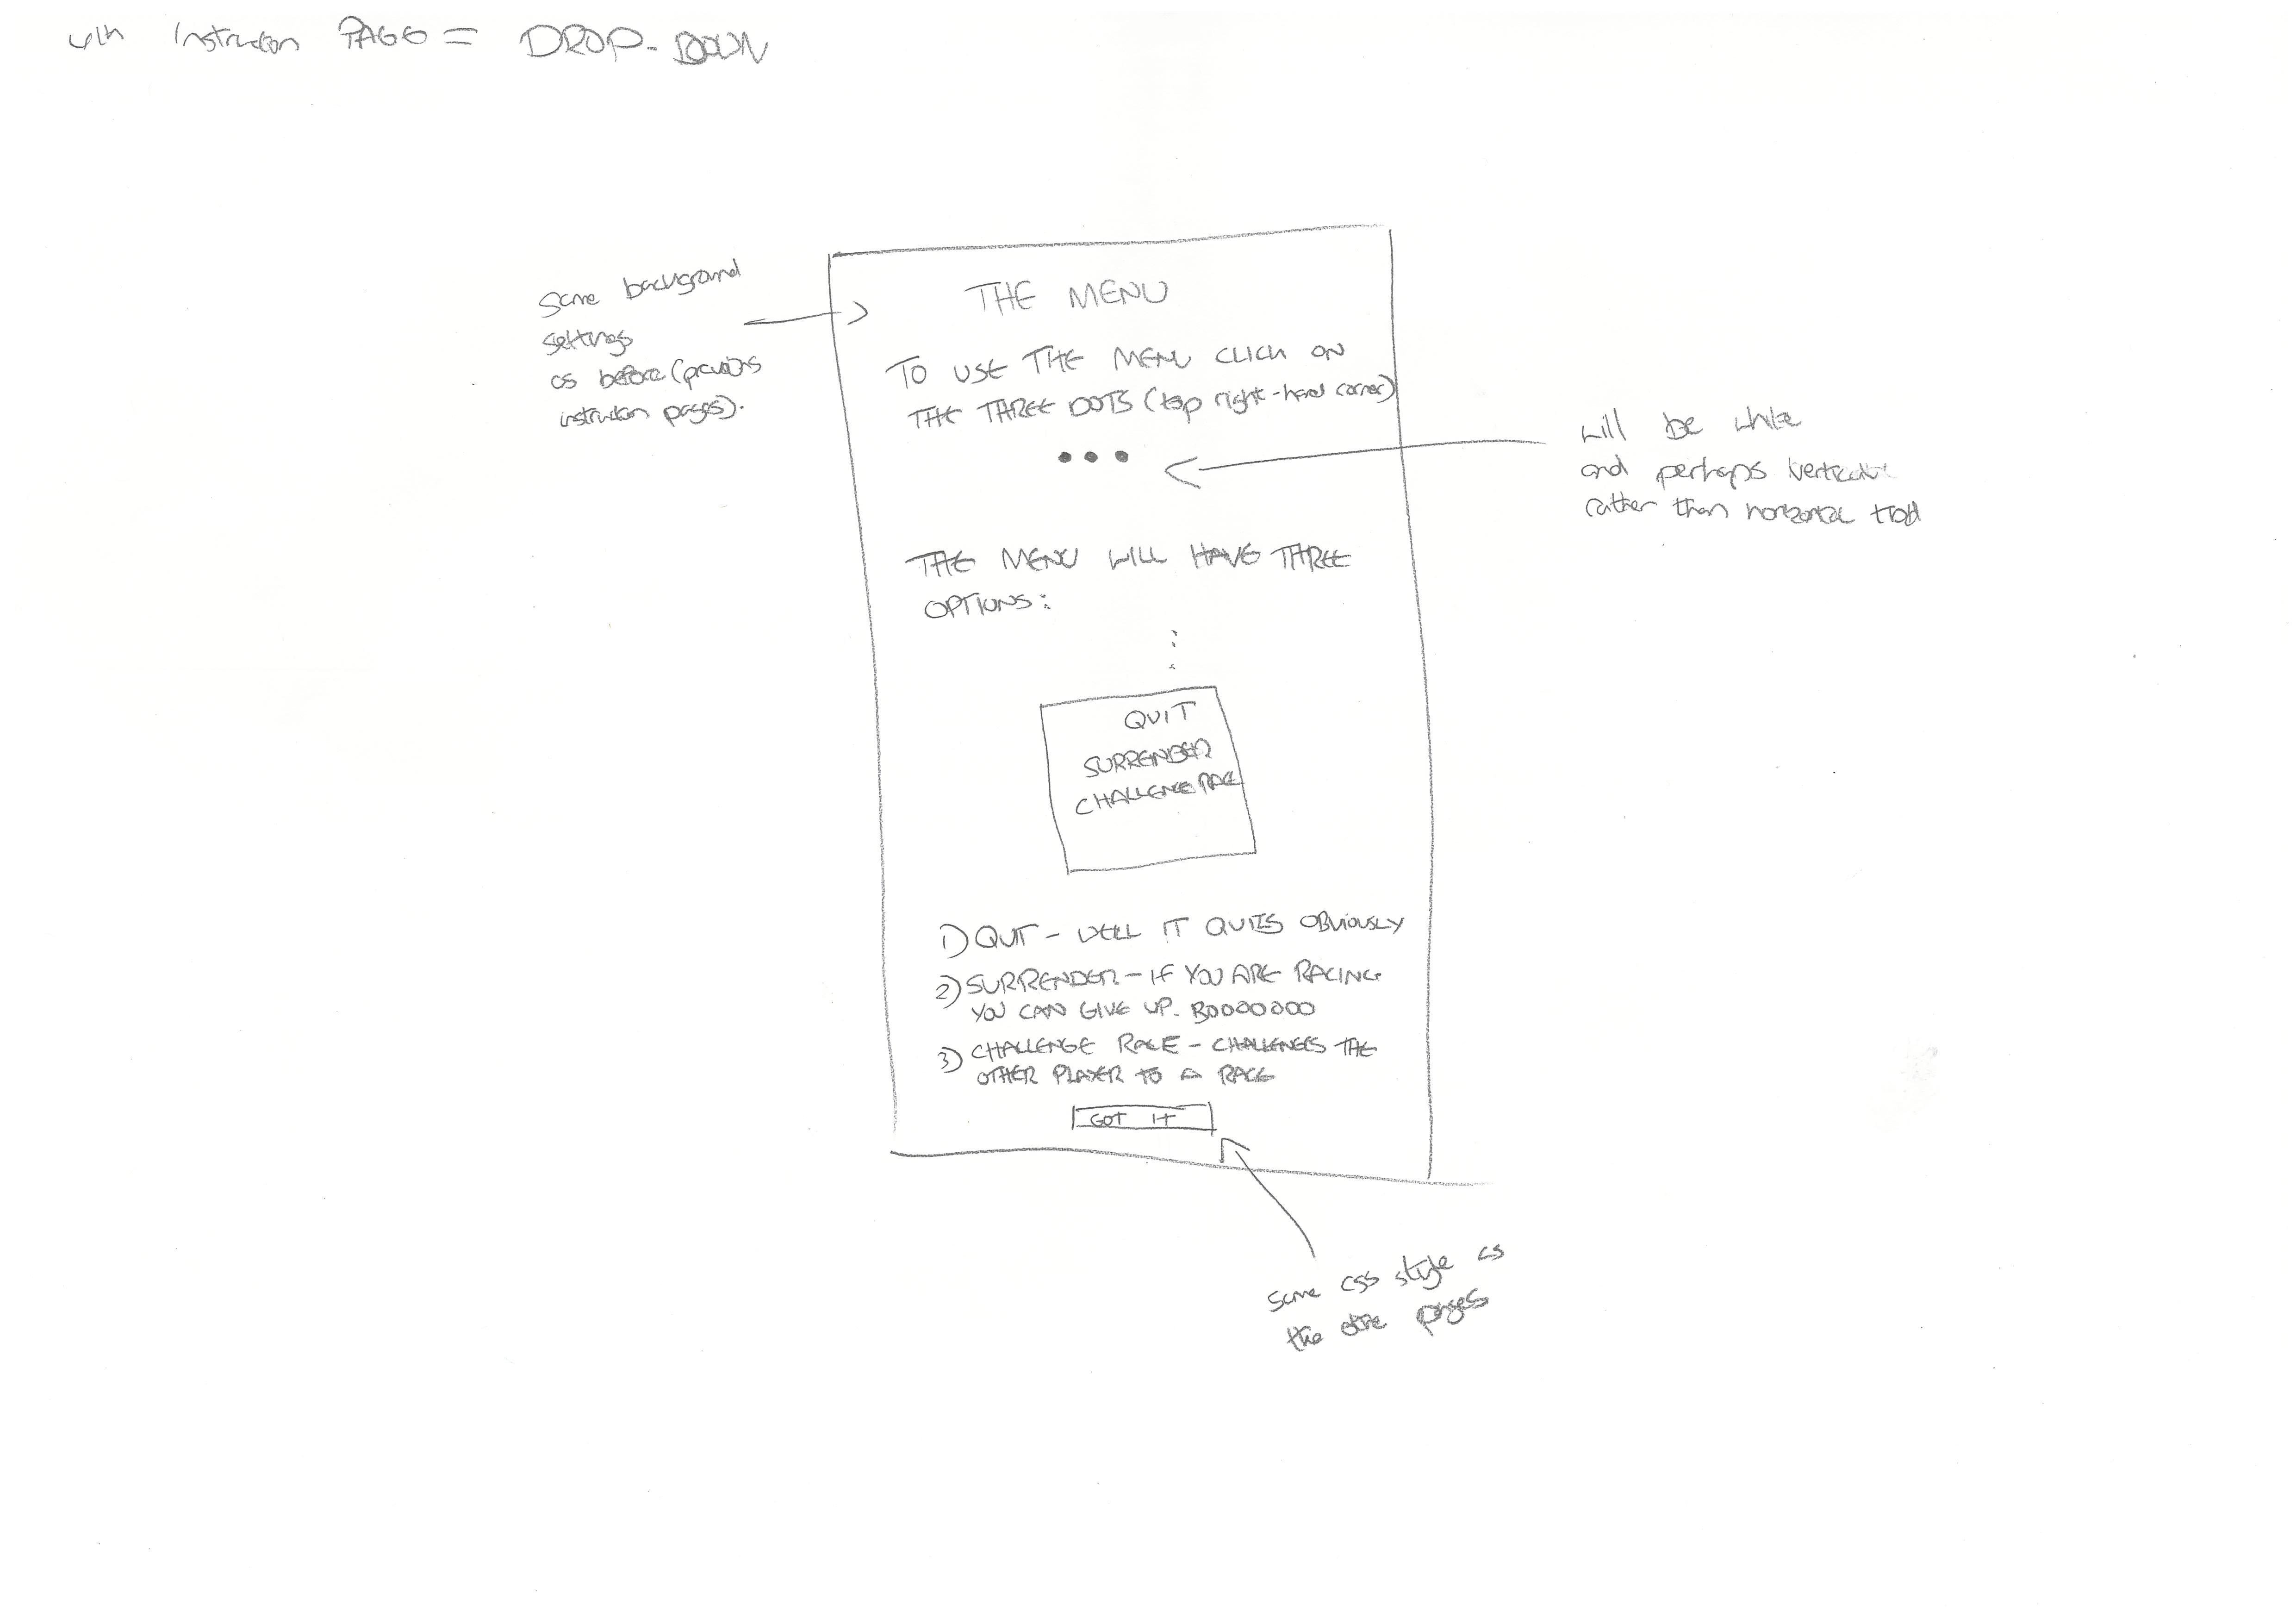 4th Instruction PAGE = DROP-DOWN
Same background
settings
as before (previous
instruction pages).
THE MENU
TO USE THE MENU CLICK ON
THE THREE DOTS (top right-hand corner)
will be white
and perhaps vertical
rather than horizontal
THE MENU WILL HAVE THREE
OPTIONS:
QUIT
SURRENDER
CHALLENGE RACE
1) QUIT - WELL IT QUITS OBVIOUSLY
2) SURRENDER - IF YOU ARE RACING
YOU CAN GIVE UP. BOOOOOOO
3) CHALLENGE RACE - CHALLENGES THE
OTHER PLAYER TO A RACE
GOT IT
Same css style as
the other pages